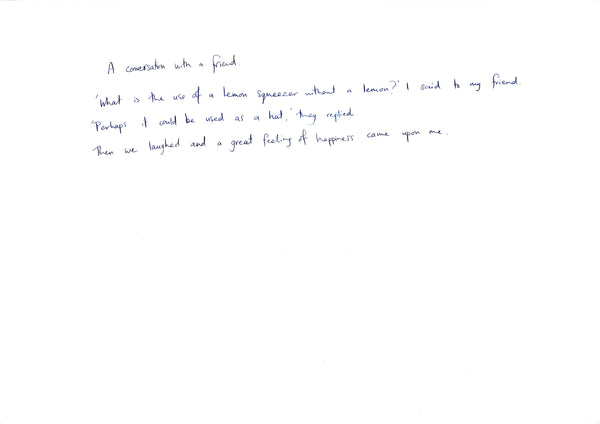 A conversation with a friend.
'What is the use of a lemon squeezer without a lemon?' I said to my friend.
'Perhaps it could be used as a hat,' they replied.
Then we laughed and a great feeling of happiness came upon me.